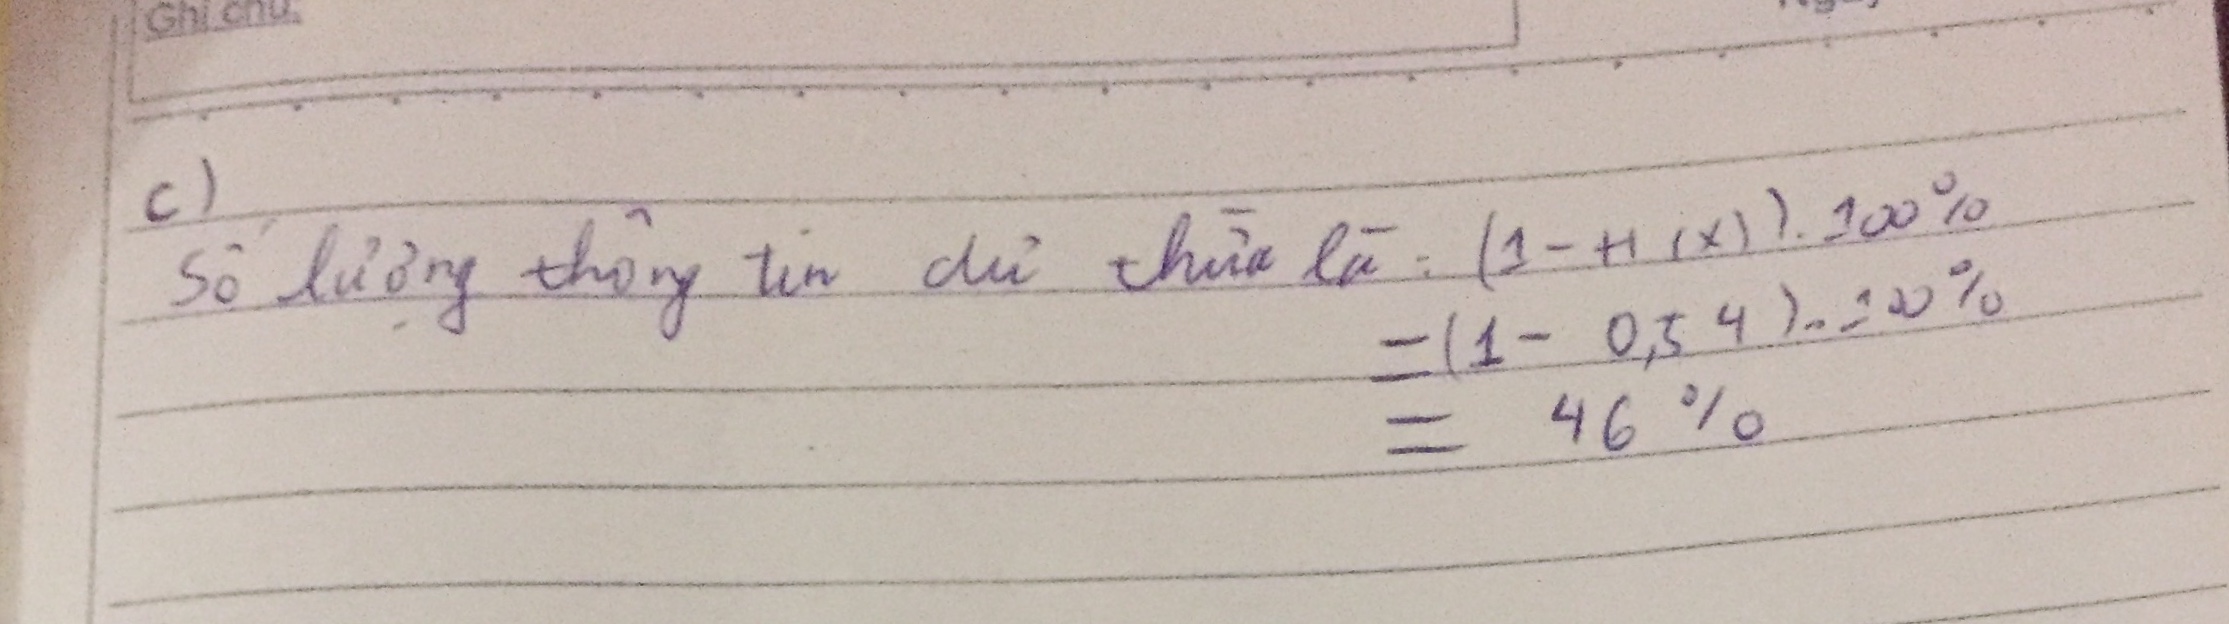 Ghi chú:
c)
Số lượng thông tin dư thừa là: (1 - H(X)). 100%
= (1 - 0,54). 100%
= 46%